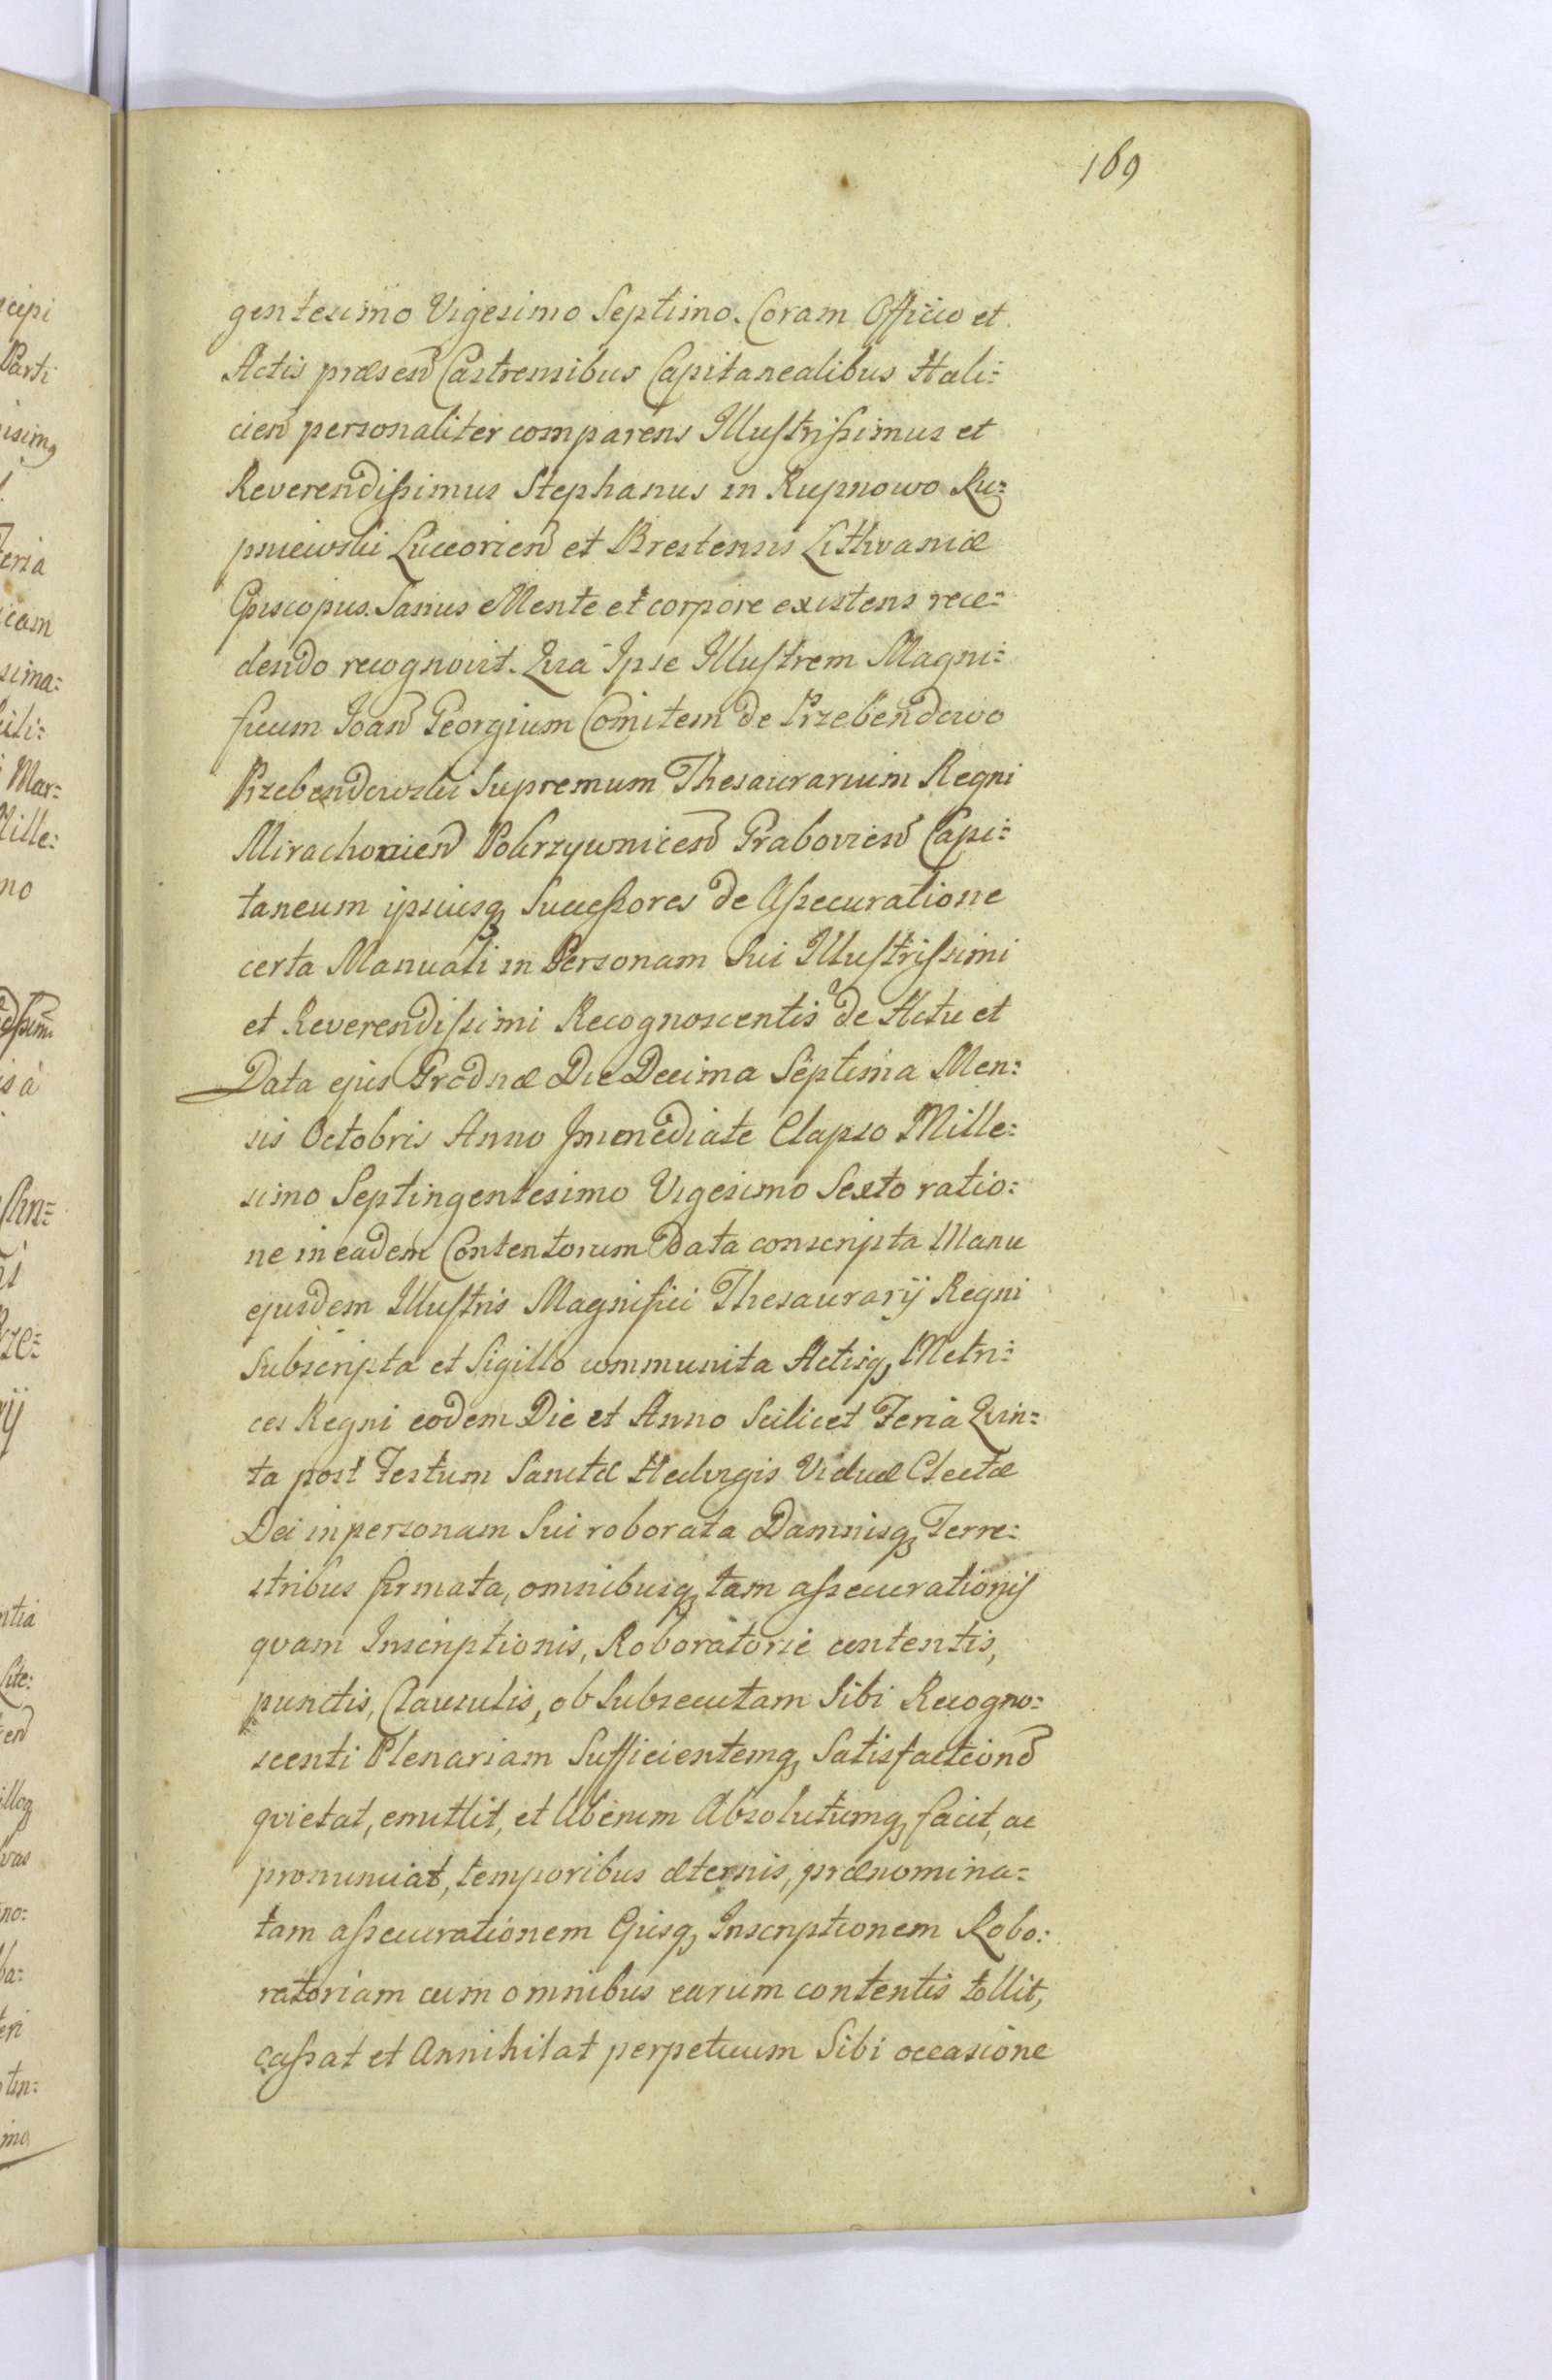 169
gentesimo Vigesimo Septimo. Coram Officio et
Actis præsen Castrensibus Capitanealibus Hali=
cien personaliter comparens Illustrissimus et
Reverendissimus Stephanus in Rupnowo Ru=
pniewski Luceorien et Brestensis Lithvaniæ
Episcopus. Sanus Mente et corpore existens rece=
dendo recognovit. Quia Ipse Illustrem Magni=
ficum Joan Georgium Comitem de Przebendowo
Przebendowski Supremum Thesaurarium Regni
Mirachovien Pokrzywnicen Grabovien Capi=
taneum ipsiusq Successores de Assecuratione
certa Manuali in Personam Sui Illustrissimi
et Reverendissimi Recognoscentis de Actu et
Data ejus Grodnæ Die Decima Septima Men=
sis Octobris Anno Immediate Elapso Mille=
simo Septingentesimo Vigesimo Sexto ratio=
ne in eadem Contentorum Data conscripta Manu
ejusdem Illustris Magnifici Thesaurarij Regni
Subscripta et Sigillo communita Actisq Metri=
ces Regni eodem Die et Anno Scilicet Feria Quin=
ta post Festum Sanctæ Hedvigis Viduæ Electæ
Dei in personam Sui roborata Damnisq Terre=
stribus firmata, omnibusq tam assecurationis
qvam Inscriptionis, Roboratoriæ contentis,
punctis, Clausulis, ob Subsecutam Sibi Recogno=
scenti Plenariam Sufficientemq Satisfaction
qvietat, emittit, et liberum Absolutumq facit, ac
pronunciat, temporibus æternis, prænomina=
tam assecurationem Ejusq Inscriptionem Robo=
ratoriam cum omnibus earum contentis tollit,
cassat et Annihilat perpetuum Sibi occasione